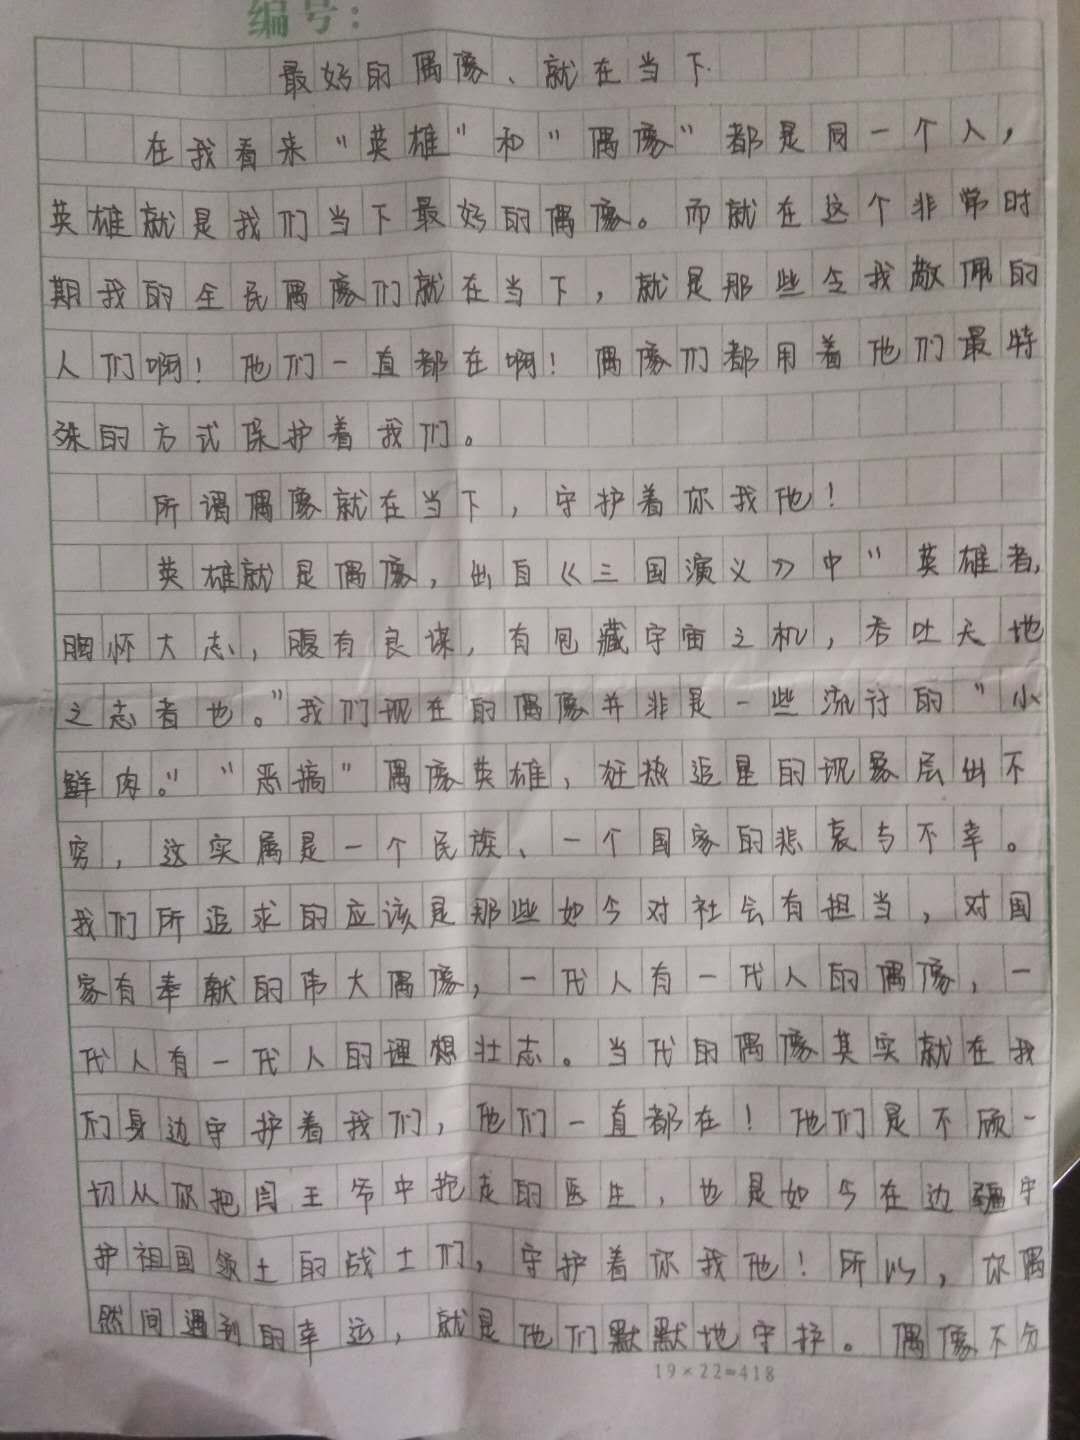 编号：
最好的偶像、就在当下.
在我看来"英雄"和"偶像"都是同一个人，
英雄就是我们当下最好的偶像。而就在这个非常时
期我的全民偶像们就在当下，就是那些令我敬佩的
人们啊！他们一直都在啊！偶像们都用着他们最特
殊的方式保护着我们。
所谓偶像就在当下，守护着你我他！
英雄就是偶像，出自《三国演义》中"英雄者，
胸怀大志，腹有良谋，有包藏宇宙之机，吞吐天地
之志者也。"我们现在的偶像并非是一些流行的"小
鲜肉。""恶搞"偶像英雄，狂热追星的现象层出不
穷，这实属是一个民族、一个国家的悲哀与不幸。
我们所追求的应该是那些如今对社会有担当，对国
家有奉献的伟大偶像，一代人有一代人的偶像，一
代人有一代人的理想壮志。当代的偶像其实就在我
们身边守护着我们，他们一直都在！他们是不顾一
切从你把阎王爷中抢走的医生，也是如今在边疆守
护祖国领土的战士们，守护着你我他！所以，你偶
然间遇到的幸运，就是他们默默地守护。偶像不分
19×22=418